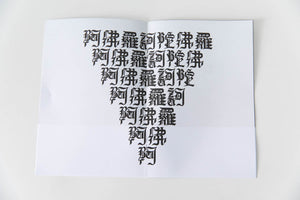 阿佛羅訶陀佛羅
阿佛羅訶陀佛
阿佛羅訶陀
阿佛羅訶
阿佛羅
阿佛
阿